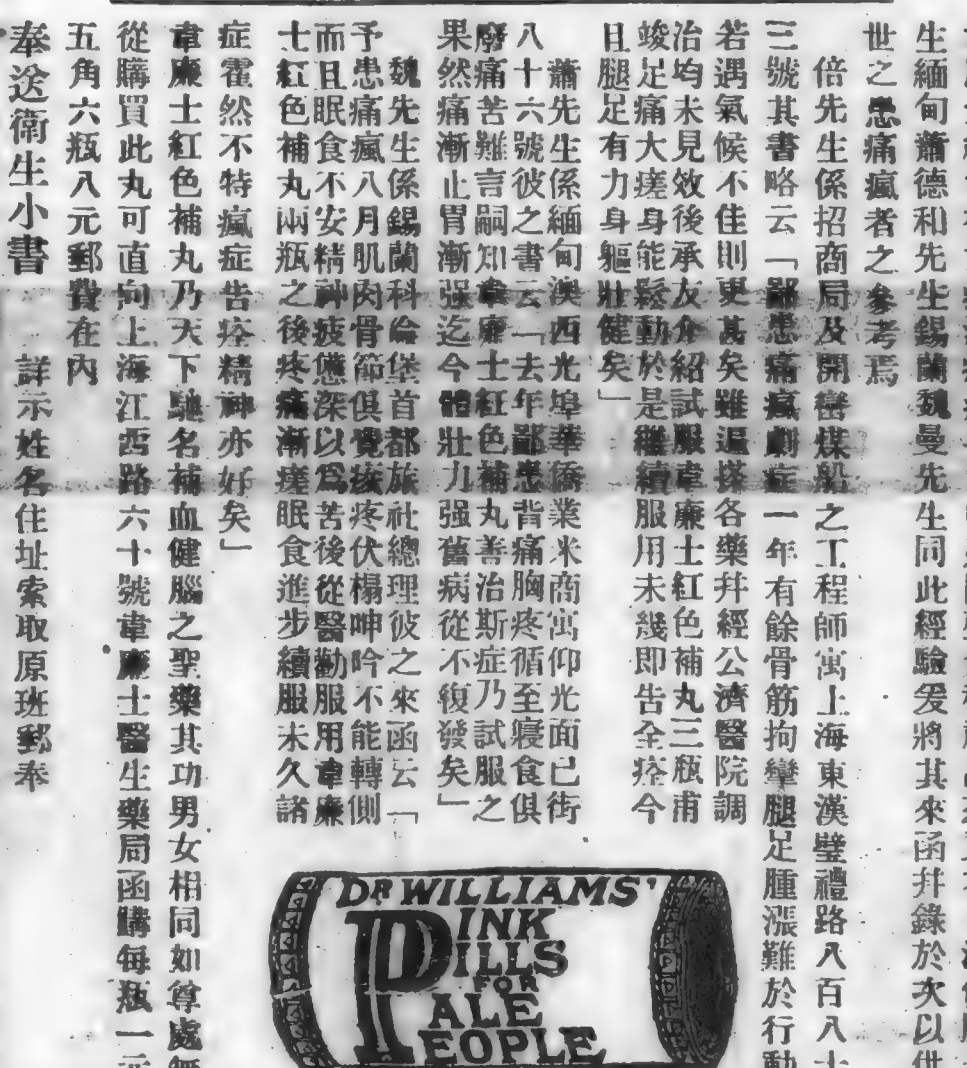 生緬甸蕭德和先生錫蘭魏曼先生同此經驗爰將其來函幷錄於次以供
世之患痛瘋者之參考焉
倍先生係招商局及開巒煤船之工程師寓上海東漢璧禮路八百八十
三號其書略云「鄙患痛瘋劇症一年有餘骨筋拘攣腿足腫漲難於行動
若遇氣候不佳則更甚矣雖遍搽各藥幷經公濟醫院調
治均未見效後承友介紹試服韋廉士紅色補丸三瓶甫
竣足痛大瘥身能鬆動於是繼續服用未幾即告全痊今
且腿足有力身軀壯健矣」
蕭先生係緬甸澳西光埠華僑業米商寓仰光面已街
八十六號彼之書云「去年鄙患背痛胸疼循至寢食俱
廢痛苦難言嗣知韋廉士紅色補丸善治斯症乃試服之
果然痛漸止胃漸强迄今體壯力强舊病從不復發矣」
魏先生係錫蘭科倫堡首都旅社總理彼之來函云「
予患痛瘋八月肌肉骨節俱覺痠疼伏榻呻吟不能轉側
而且眠食不安精神疲憊深以爲苦後從醫勸服用韋廉
士紅色補丸兩瓶之後疼痛漸瘥眠食進步續服未久諸
症霍然不特瘋症告痊精神亦好矣」
韋廉士紅色補丸乃天下馳名補血健腦之聖藥其功男女相同如尊處無
從購買此丸可直向上海江西路六十號韋廉士醫生藥局函購每瓶一元
五角六瓶八元郵費在內
奉送衛生小書 詳示姓名住址索取原班郵奉
DR WILLIAMS'
PINK
PILLS
FOR
PALE
PEOPLE